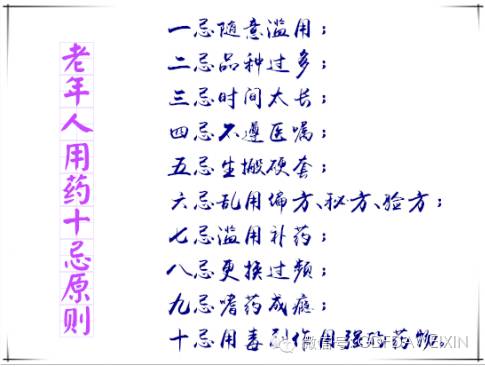 老年人用药十忌原则
一忌随意滥用；
二忌品种过多；
三忌时间太长；
四忌不遵医嘱；
五忌生搬硬套；
六忌乱用偏方、秘方、验方；
七忌滥用补药；
八忌更换过频；
九忌嗜药成瘾；
十忌用毒副作用强的药物。
微信号: GDFDAWEIXIN